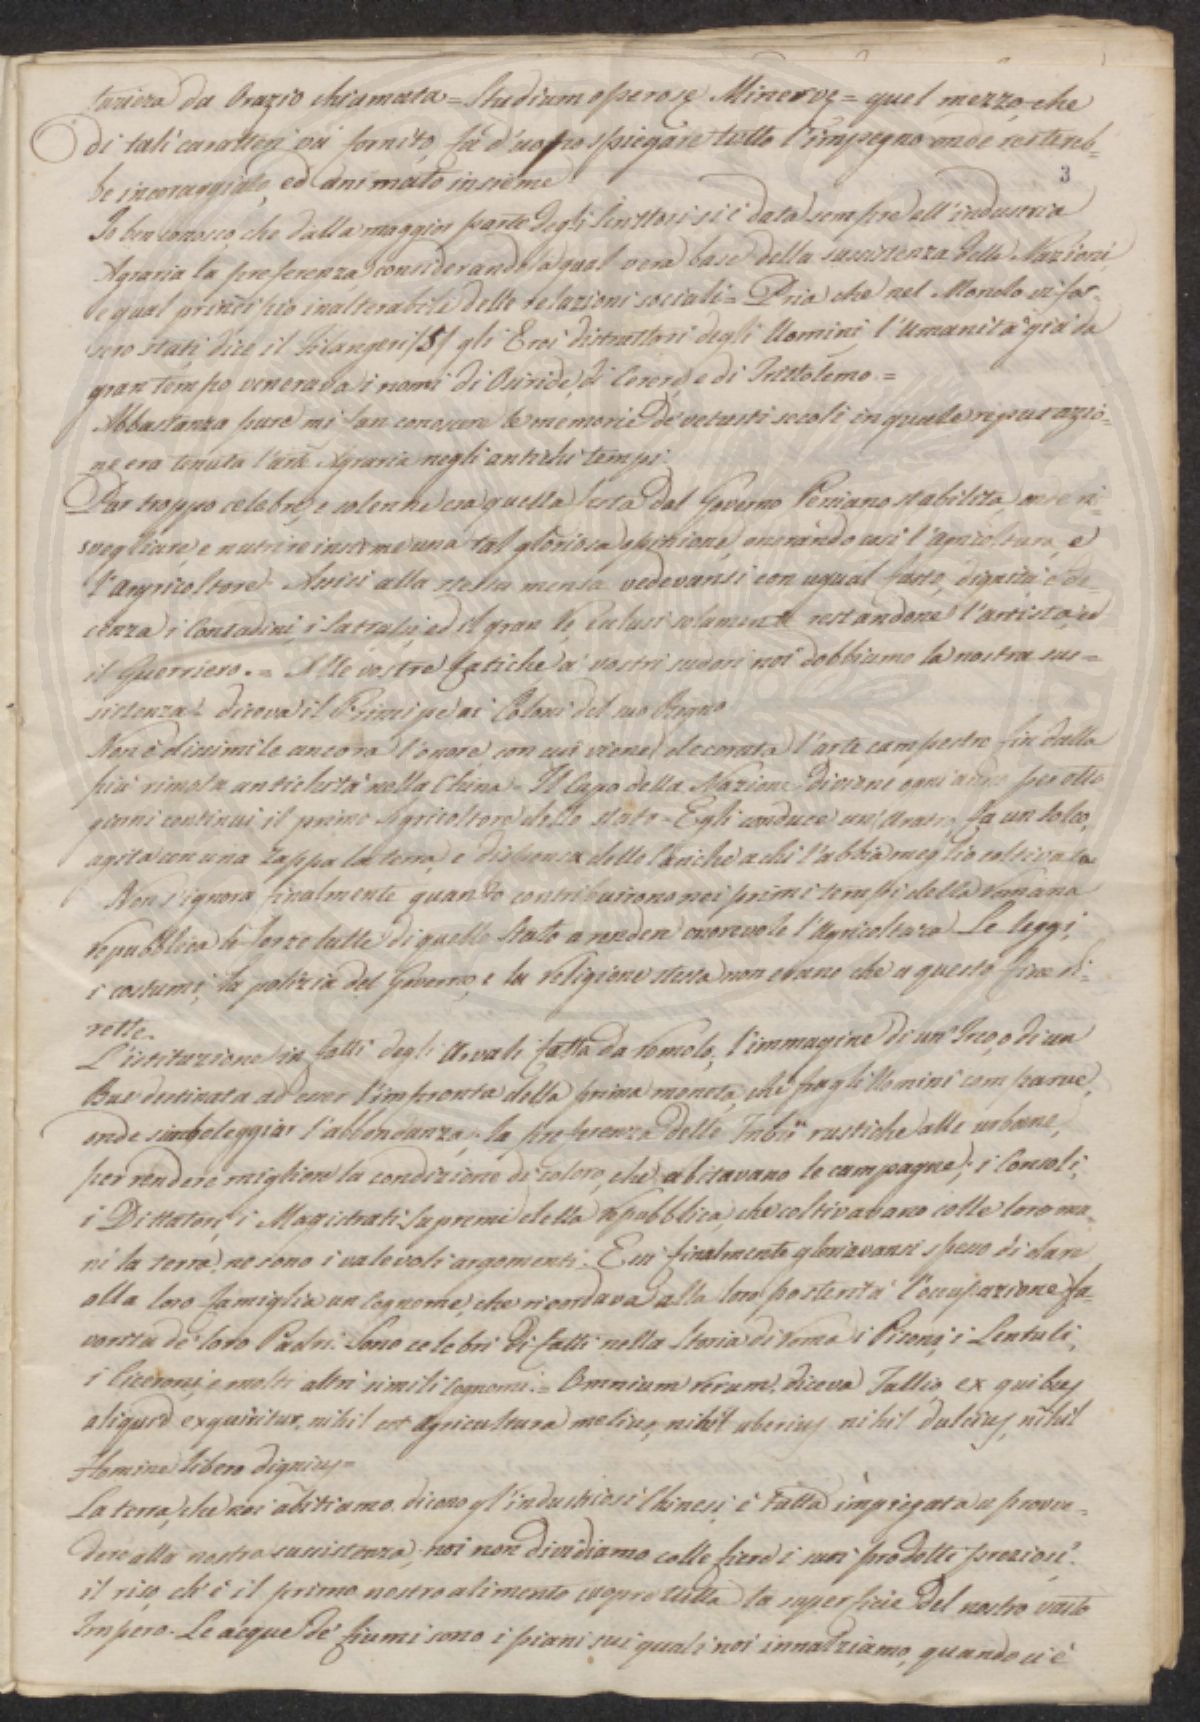 turiera da Orazio chiamata = Studium operosę Minervę = quel mezzo che
di tali caratteri và fornito, fà d'uopo spiegare tutto l'impegno onde restereb-
be incoraggiato, ed animato insieme
3
Io ben conosco, che dalla maggior parte degli Scrittori si è data sempre all'industria
Agraria la preferenza, considerandola qual vera base della sussistenza delle Nazioni,
e qual principio inalterabile delle relazioni sociali = Pria che nel Mondo vi fos-
sero stati, dice il Filangeri /5/ gli Eroi distruttori degli Uomini, l'Umanità già da
gran tempo venerava i nomi di Osiride, di Cerere, e di Trittolemo =
Abbastanza pure mi fan conoscere le memorie de' vetusti secoli in quale reputazio-
ne era tenuta l'arte Agraria negli antichi tempi.
Pur troppo celebre, e solenne era quella festa dal Governo Persiano stabilita, onde ri-
svegliare, e nutrire insieme una tal gloriosa opinione, onorando così l'agricoltura, e
l'Agricoltore. Assisi alla stessa mensa vedevansi con ugual fasto, dignità, e de-
cenza i Contadini, i Satrapi, ed il gran Re, esclusi solamente restandone l'artista, ed
il Guerriero. = Alle vostre fatiche, a' vostri sudori noi dobbiamo la nostra sus=
sistenza = diceva il Principe ai Coloni del suo Regno
Non è dissimile ancora l'onore, con cui viene decorata l'arte campestre fin dalla
più rimota antichità nella China = Il Capo della Nazione diviene ogni anno per otto
giorni continui il primo Agricoltore dello stato = Egli conduce un Aratro, fa un solco,
agita con una Zappa la terra, e dispensa delle cariche a chi l'abbia meglio coltivata
Non s'ignora finalmente quanto contribuirono nei primi tempi della romana
repubblica le forze tutte di quello Stato a rendere onorevole l'Agricoltura. Le leggi,
i costumi, la polizia del Governo, e la religione stessa non erano che a questo fine di-
rette.
L'istituzione in fatti degli Arvali fatta da romolo, l'immagine di un Irco, o di un
Bue destinata ad esser l'impronta della prima moneta, che fra gli Uomini comparve,
onde simboleggiar l'abbondanza, la preferenza delle Tribù rustiche alle urbane,
per rendere migliore la condizione di coloro, che abitavano le campagne; i Consoli,
i Dittatori, i Magistrati Supremi della repubblica, che coltivavano colle loro ma-
ni la terra, ne sono i valevoli argomenti. Essi finalmente gloriavansi spesso di dare
alla loro famiglia un Cognome, che ricordava alla loro posterità l'occupazione fa-
vorita de' loro Padri. Sono celebri di fatti nella Storia di Roma i Pisoni, i Lentuli,
i Ciceroni, e molti altri simili Cognomi = Omnium rerum, diceva Tullio, ex quibus
aliquid exquiritur, nihil est agricultura melius, nihil uberius, nihil dulcius, nihil
Homine libero dignius =
La terra, che noi abitiamo, dicono gl'industriosi Chinesi, è tutta impiegata a provve-
dere alla nostra sussistenza; noi non dividiamo colle fiere i suoi prodotti preziosi.
il riso, ch'è il primo nostro alimento cuopre tutta la superficie del nostro vasto
Impero. Le acque de' fiumi sono i piani sui quali noi innalziamo, quando ci è